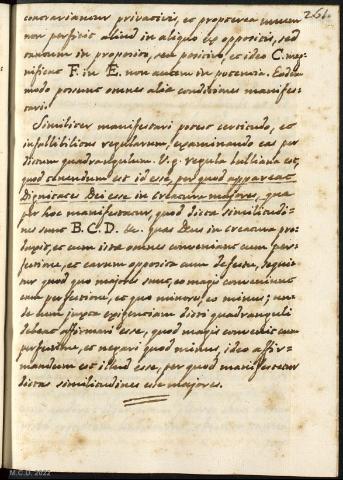 261.
contrariantur privativis, et propterea unum
non perficit aliud in aliquo ex oppositis, sed
tantum in proposito, seu positivo, et ideo C. mag-
nificat F. in E. non autem in potentia. Eodem
modo possunt omnes aliæ conditiones manifes-
tari.
Similiter manifestari potest certitudo, et
infallibilitas regularum, examinando eas per
dictum quadrangulum. V.g. regula lulliana est,
quod tenendum est id esse, per quod appareat
Dignitates Dei esse in creatura majores, quæ
per hoc manifestatur, quod dictæ similitudi-
nes sunt B. C. D. &c. quas Deus in creatura pro-
duxit, et cum istæ omnes conveniant cum per-
fectione, et earum opposita cum defectu, sequi-
tur quod quo majores sunt, eo magis conveniunt
cum perfectione, et quo minores, eo minus; un-
de cum juxta exigentiam dicti quadranguli
debeat affirmari esse, quod magis convenit cum
perfectione, et negari quod minus, ideo affir-
mandum est illud esse, per quod manifestetur
dictas similitudines esse majores.
M.C.D. 2022